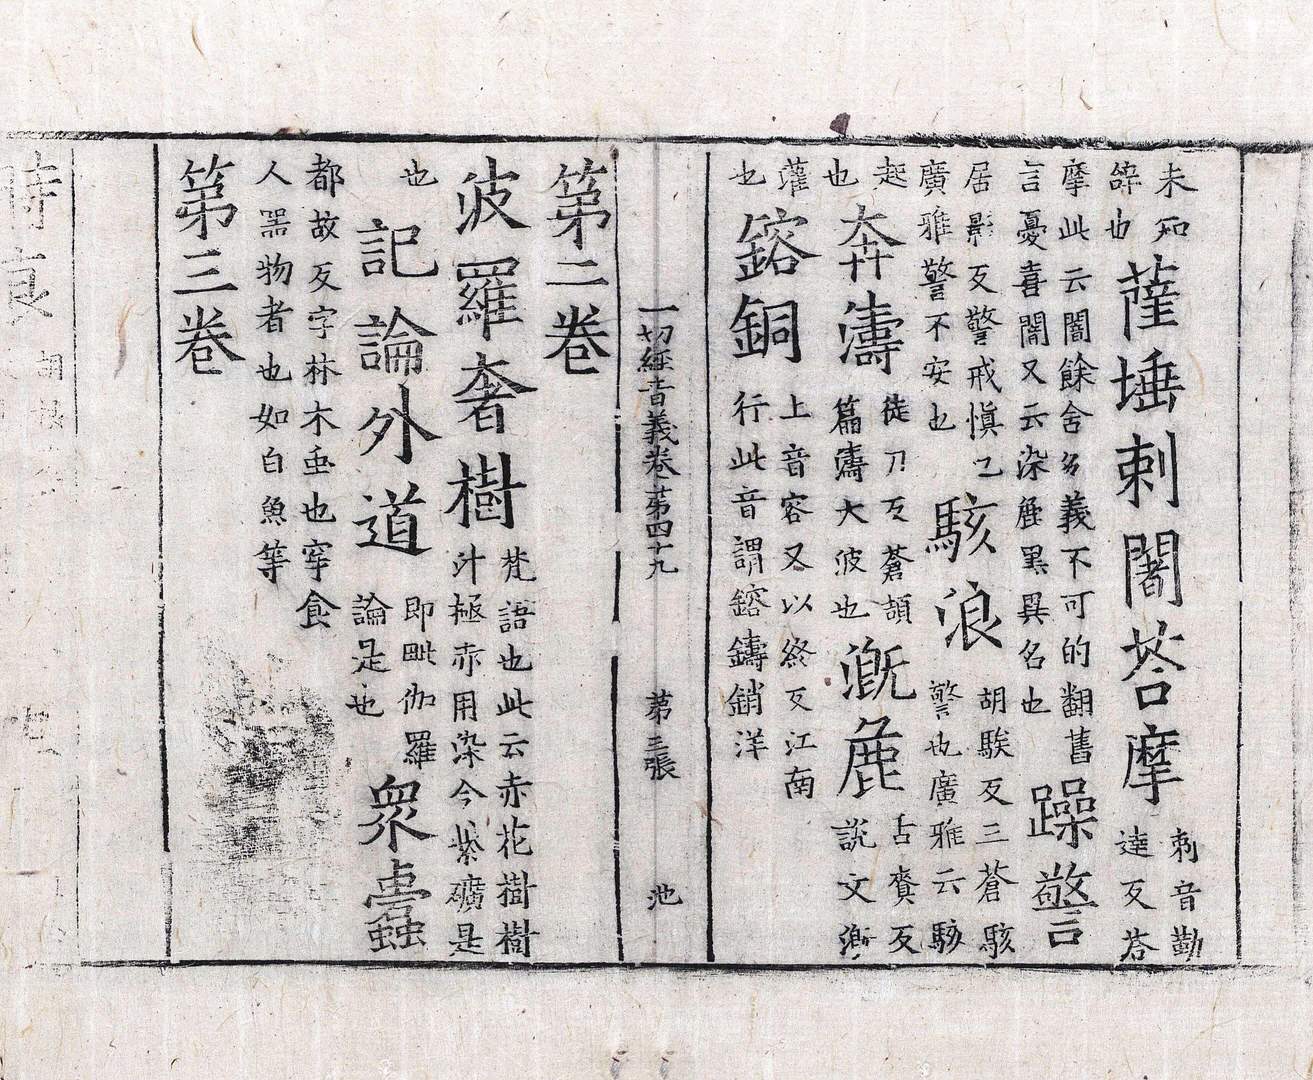 未知
辤也
薩埵剌闍荅摩
剌音勒
達反荅
摩此云闇餘舍多義不可的翻舊
言憂喜闇又云染塵黑異名也
躁警
居影反警戒慎也
廣雅警不安也
駭浪
胡騃反三蒼駭
警也廣雅云駭
起
也
奔濤
徒刀反蒼頡
篇濤大波也
漑麁
古賷反
説文漑
灌
也
鎔銅
上音容又以終反江南
行此音謂鎔鑄銷洋
一切經音義卷第四十九 第三張 池
第二卷
波羅奢樹
梵語也此云赤花樹樹
汁極赤用染今紫礦是
也
記論外道
即毗伽羅
論是也
衆蠹
都故反字林木虫也穿食
人噐物者也如白魚等
第三卷